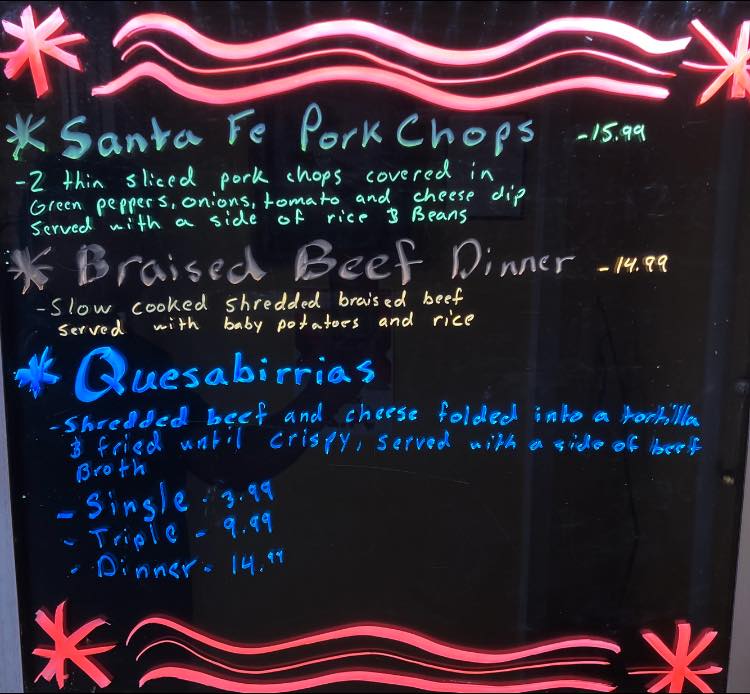 * Santa Fe Pork Chops -15.99
-2 thin sliced pork chops covered in
Green peppers, onions, tomato and cheese dip
Served with a side of rice & Beans
* Braised Beef Dinner -14.99
-Slow cooked shredded braised beef
served with baby potatoes and rice
* Quesabirrias
-Shredded beef and cheese folded into a tortilla
& fried until crispy, served with a side of beef
Broth
- Single - 3.99
- Triple - 9.99
- Dinner - 14.99